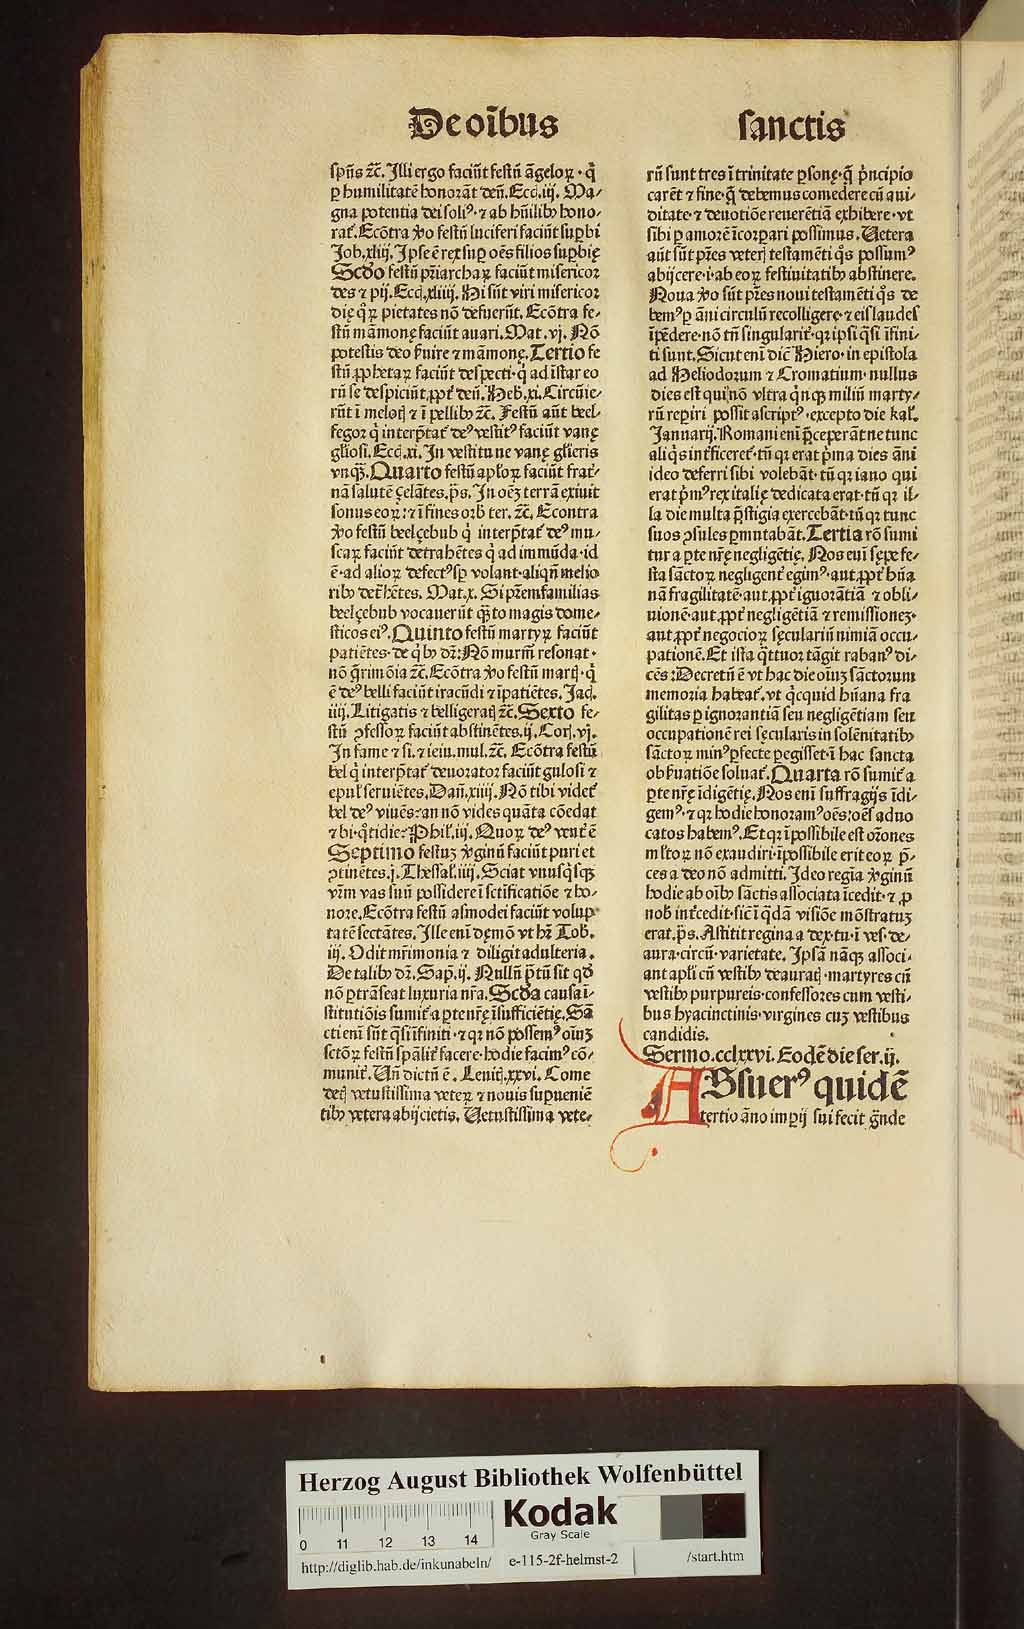 De oı̄bus sanctis
spūs ⁊c̄. Illi ergo faciūt festū āgeloꝝ · q̇
ꝑ humilitatē honorāt deū. Ecċ. iij. Ma-
gna potentia dei soliꝰ · ⁊ ab hūilibꝫ hono-
rat᷑. Ecōtra ꝟo festū luciferi faciūt supbi
Job. xliij. Ipse ē rex suꝑ oēs filios supbię
Scd̓o festū pr̄iarchaꝝ faciūt misericor
des ⁊ pij. Ecċi. xliiij. Hi sūt viri misericor
dię q̊ꝝ pietates nō defuerūt. Ecōtra fe-
stū māmonę faciūt auari. Mat. vj. Nō
potestis deo ẜuire ⁊ māmonę. Tertio fe
stū ꝓphetaꝝ faciūt despecti · q̇ ad īstar eo
rū se despiciūt, ꝓpt᷑ deū. Heb̓. xi. Circūie-
rūt ī melotꝭ ⁊ ī pellibꝫ ⁊c̄. Festū aūt beel-
fegor q̇ interp̄tat᷑ deꝰ vestitꝰ faciūt vanę
gl̄iosi. Ecċi. xi. In vestitu ne vanę gl̄ieris
vnqꝫ. Quarto festū apl̓oꝝ faciūt frat᷑-
nā salutē çelātes. p̄s. In oēꝫ terrā exiuit
sonus eoꝝ: ⁊ ī fines orb̓ ter. ⁊c̄. Econtra
ꝟo festū beelçebub q̇ interp̄tat᷑ deꝰ mu-
scaꝝ faciūt detrahētes q̇ ad immūda · id
ē · ad alioꝝ defectꝰ sꝑ volant · aliqn̄ melio
ribꝫ det᷑hētes. Mat. x. Si pr̄emfamilias
beelçebub vocauerūt qꝫto magis dome-
sticos eiꝰ. Quinto festū martyꝝ faciūt
patiētes · de q̇bꝫ dr̄: Nō murm̄ resonat ·
nō q̄rimōia ⁊c̄. Ecōtra ꝟo festū martꝭ · q̇
ē deꝰ belli faciūt iracūdi ⁊ īpatiētes. Jac̄.
iiij. Litigatis ⁊ belligeratꝭ ⁊c̄. Sexto fe-
stū ꝯfessoꝝ faciūt abstinētes. ij. Corꝭ. vj.
In fame ⁊ si. ⁊ ieiu. mul. ⁊c̄. Ecōtra festū
bel q̇ interp̄tat᷑ deuorator faciūt gulosi ⁊
epul̓ seruientes. Dan̄. xiiij. Nō tibi videt᷑
bel deꝰ viuēs: an nō vides quāta cōedat
⁊ bi · q̊tidie? Phil̓. iij. Quoꝝ deꝰ vent᷑ ē
Septimo festuꝫ ꝟginū faciūt puri et
ꝯtinētes. j. Thessal̓. iiij. Sciat vnusq̇sqꝫ
vr̄m vas suū possidere ī sctīficatiōe ⁊ ho-
nore. Ecōtra festū asmodei faciūt volup
tatē sectātes. Ille enī dęmō vt hr̄ Tob̓.
iij. Odit mr̄imonia ⁊ diligit adulteria.
De talibꝫ dr̄. Sap̄. ij. Nullū p̄tū sit qd̓
nō ꝑtrāseat luxuria nr̄a. Scd̓a causa ī-
stitutiōis sumit᷑ a ꝑte nr̄ę īsufficiētię. Sā
cti enī sūt q̇si īfiniti · ⁊ qꝛ nō possemꝰ oīuꝫ
sctōꝝ festū sp̄alit᷑ facere · hodie facimꝰ cō-
munit᷑. Un̄ dictū ē. Leuitꝭ. xxvi. Come
detꝭ vetustissima veteꝝ ⁊ nouis suꝑueniē
tibꝫ vetera abijcietis. Uetustissima vete-
rū sunt tres ī trinitate ꝑsonę · q̄ p̄ncipio
carēt ⁊ fine · q̄ debemus comedere cū aui-
ditate · ⁊ deuotiōe reuerētiā exhibere · vt
sibi ꝑ amorē īcorꝑari possimus. Uetera
aūt sūt pr̄es veterꝭ testamēti q̊s possumꝰ
abijcere · i · ab eoꝝ festiuitatibꝫ abstinere.
Noua ꝟo sūt pr̄es noui testamēti q̊s de
bemꝰ ꝑ āni circulū recolligere · ⁊ eis laudes
īpēdere · nō tn̄ singularit᷑ · qꝛ ipsi q̇si īfini-
ti sunt. Sicut enī dic̄ Hiero · in epistola
ad Heliodorum ⁊ Cromatium · nullus
dies est qui nō vltra q̇nqꝫ miliū marty-
rū reꝑiri possit ascriptꝰ · excepto die kal̓.
Jannarij. Romani enī p̄ceperāt ne tunc
aliq̇s int᷑ficeret᷑ · tū qꝛ erat p̄ma dies āni
ideo deferri sibi volebāt · tū qꝛ iano qui
erat p̄mꝰ rex italię dedicata erat · tū qꝛ il-
la die multa p̄stigia exercebāt · tū qꝛ tunc
suos ꝯsules ꝑmutabāt. Tertia rō sumi
tur a ꝑte nr̄ę negligētię. Nos enī sępe fe-
sta sāctoꝝ negligent᷑ egimꝰ · aut ꝓpt᷑ hūa
nā fragilitatē · aut ꝓpt᷑ ignorātiā ⁊ obli-
uionē · aut ꝓpt᷑ negligētiā ⁊ remissioneꝫ ·
aut ꝓpt᷑ negocioꝝ sęculariū nimiā occu-
pationē. Et ista q̄ttuor tāgit rabanꝰ di-
cēs: Decretū ē vt hac die oīuꝫ sāctorum
memoria habeat᷑. vt q̇cquid hūana fra
gilitas ꝑ ignorantiā seu negligētiam seu
occupationē rei sęcularis in solēnitatibꝫ
sāctoꝝ minꝰ ꝑfecte ꝑegisset · ī hac sancta
obẜuatiōe soluat᷑. Quarta rō sumit᷑ a
ꝑte nr̄ę īdigētię. Nos enī suffragijs īdi-
gemꝰ · ⁊ qꝛ hodie honoramꝰ oēs: oēs aduo
catos habemꝰ. Et qꝛ īpossibile est or̄ones
ml̓toꝝ nō exaudiri · īpossibile erit eoꝝ p̄-
ces a deo nō admitti. Ideo regia ꝟginū
hodie ab oībꝫ sāctis associata īcedit · ⁊ ꝓ
nob̓ int᷑cedit · sic̄ ī q̇dā visiōe mōstratuꝫ
erat. p̄s. Astitit regina a dex · tu · ī ves̄. de-
aura · circū · varietate. Ipsā nāqꝫ associ-
ant apl̓i cū vestibꝫ deauratꝭ · martyres cū
vestibꝫ purpureis · confessores cum vesti-
bus hyacinctinis · virgines cuꝫ vestibus
candidis.
Sermo. cclxxvi. Eodē die ser. ij.
ABsuerꝰ quidē
tertio āno imꝑij sui fecit gr̄nde
Herzog August Bibliothek Wolfenbüttel
Kodak
Gray Scale
0 11 12 13 14
http://diglib.hab.de/inkunabeln/ e-115-2f-helmst-2 /start.htm